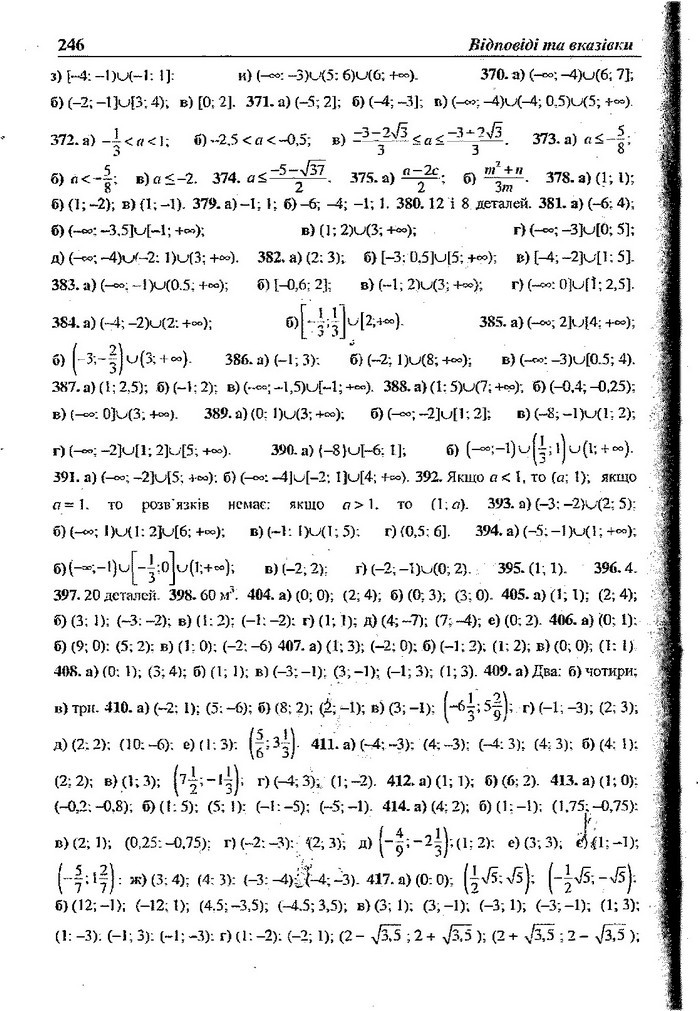 246 Відповіді та вказівки
з) [–4; –1)∪(–1; 1]; и) (–∞; –3)∪(5; 6)∪(6; +∞). 370. а) (–∞; –4)∪(6; 7];
б) (–2; –1]∪[3; 4); в) [0; 2]. 371. а) (–5; 2]; б) (–4; –3]; в) (–∞; –4)∪(–4; 0,5)∪(5; +∞).
372. а) –1/3 < a < 1; б) –2,5 < a < –0,5; в) (–3–2√3)/3 ≤ a ≤ (–3+2√3)/3. 373. а) a ≤ –5/8;
б) a < –5/8; в) a ≤ –2. 374. a ≤ (–5–√37)/2. 375. а) (a–2c)/2; б) (m²+n)/3m. 378. а) (1; 1);
б) (1; –2); в) (1; –1). 379. а) –1; 1; б) –6; –4; –1; 1. 380. 12 і 8 деталей. 381. а) (–6; 4);
б) (–∞; –3,5]∪[–1; +∞); в) (1; 2)∪(3; +∞); г) (–∞; –3]∪[0; 5];
д) (–∞; –4)∪(–2; 1)∪(3; +∞). 382. а) (2; 3); б) [–3; 0,5]∪[5; +∞); в) [–4; –2]∪[1; 5].
383. а) (–∞; –1)∪(0,5; +∞); б) [–0,6; 2]; в) (–1; 2)∪(3; +∞); г) (–∞; 0]∪[1; 2,5].
384. а) (–4; –2)∪(2; +∞); б) [–1/3; 1/3]∪[2; +∞). 385. а) (–∞; 2]∪[4; +∞);
б) (–3; –2/3)∪(3; +∞). 386. а) (–1; 3); б) (–2; 1)∪(8; +∞); в) (–∞; –3)∪[0,5; 4).
387. а) (1; 2,5); б) (–1; 2); в) (–∞; –1,5)∪[–1; +∞). 388. а) (1; 5)∪(7; +∞); б) (–0,4; –0,25);
в) (–∞; 0]∪(3; +∞). 389. а) (0; 1)∪(3; +∞); б) (–∞; –2]∪[1; 2]; в) (–8; –1)∪(1; 2);
г) (–∞; –2]∪[1; 2]∪[5; +∞). 390. а) {–8}∪[–6; 1]; б) (–∞; –1)∪(1/3; 1)∪(1; +∞).
391. а) (–∞; –2]∪[5; +∞); б) (–∞; –4]∪[–2; 1]∪[4; +∞). 392. Якщо a < 1, то (a; 1); якщо
a = 1, то розв'язків немає; якщо a > 1, то (1; a). 393. а) (–3; –2)∪(2; 5);
б) (–∞; 1)∪(1; 2]∪[6; +∞); в) (–1; 1)∪(1; 5); г) (0,5; 6]. 394. а) (–5; –1)∪(1; +∞);
б) (–∞; –1)∪[–1/3; 0]∪(1; +∞); в) (–2; 2); г) (–2; –1)∪(0; 2). 395. (1; 1). 396. 4.
397. 20 деталей. 398. 60 м³. 404. а) (0; 0); (2; 4); б) (0; 3); (3; 0). 405. а) (1; 1); (2; 4);
б) (3; 1); (–3; –2); в) (1; 2); (–1; –2); г) (1; 1); д) (4; –7); (7; –4); е) (0; 2). 406. а) (0; 1);
б) (9; 0); (5; 2); в) (1; 0); (–2; –6) 407. а) (1; 3); (–2; 0); б) (–1; 2); (1; 2); в) (0; 0); (1; 1)
408. а) (0; 1); (3; 4); б) (1; 1); в) (–3; –1); (3; –1); (–1; 3); (1; 3). 409. а) Два; б) чотири;
в) три. 410. а) (–2; 1); (5; –6); б) (8; 2); (2; –1); в) (3; –1); (–6 1/3; 5 2/9); г) (–1; –3); (2; 3);
д) (2; 2); (10; –6); е) (1; 3); (5/6; 3 1/3). 411. а) (–4; –3); (4; –3); (–4; 3); (4; 3); б) (4; 1);
(2; 2); в) (1; 3); (7 1/2; –1 1/3); г) (–4; 3); (1; –2). 412. а) (1; 1); б) (6; 2). 413. а) (1; 0);
(–0,2; –0,8); б) (1; 5); (5; 1); (–1; –5); (–5; –1). 414. а) (4; 2); б) (1; –1); (1,75; –0,75);
в) (2; 1); (0,25; –0,75); г) (–2; –3); (2; 3); д) (–4/9; –2 1/3); (1; 2); е) (3; 3); є) (1; –1);
(–5/7; 1 2/7); ж) (3; 4); (4; 3); (–3; –4); (–4; –3). 417. а) (0; 0); (1/2√5; √5); (–1/2√5; –√5);
б) (12; –1); (–12; 1); (4,5; –3,5); (–4,5; 3,5); в) (3; 1); (3; –1); (–3; 1); (–3; –1); (1; 3);
(1; –3); (–1; 3); (–1; –3); г) (1; –2); (–2; 1); (2 – √3,5 ; 2 + √3,5 ); (2 + √3,5 ; 2 – √3,5 );